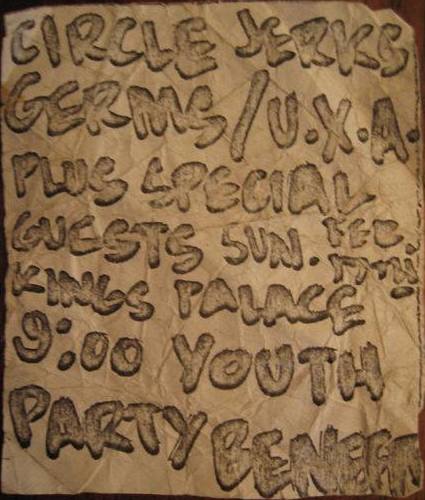 CIRCLE JERKS
GERMS/U.X.A.
PLUS SPECIAL
GUESTS SUN. FEB.
KINGS PALACE
9:00 YOUTH
PARTY BENEFIT